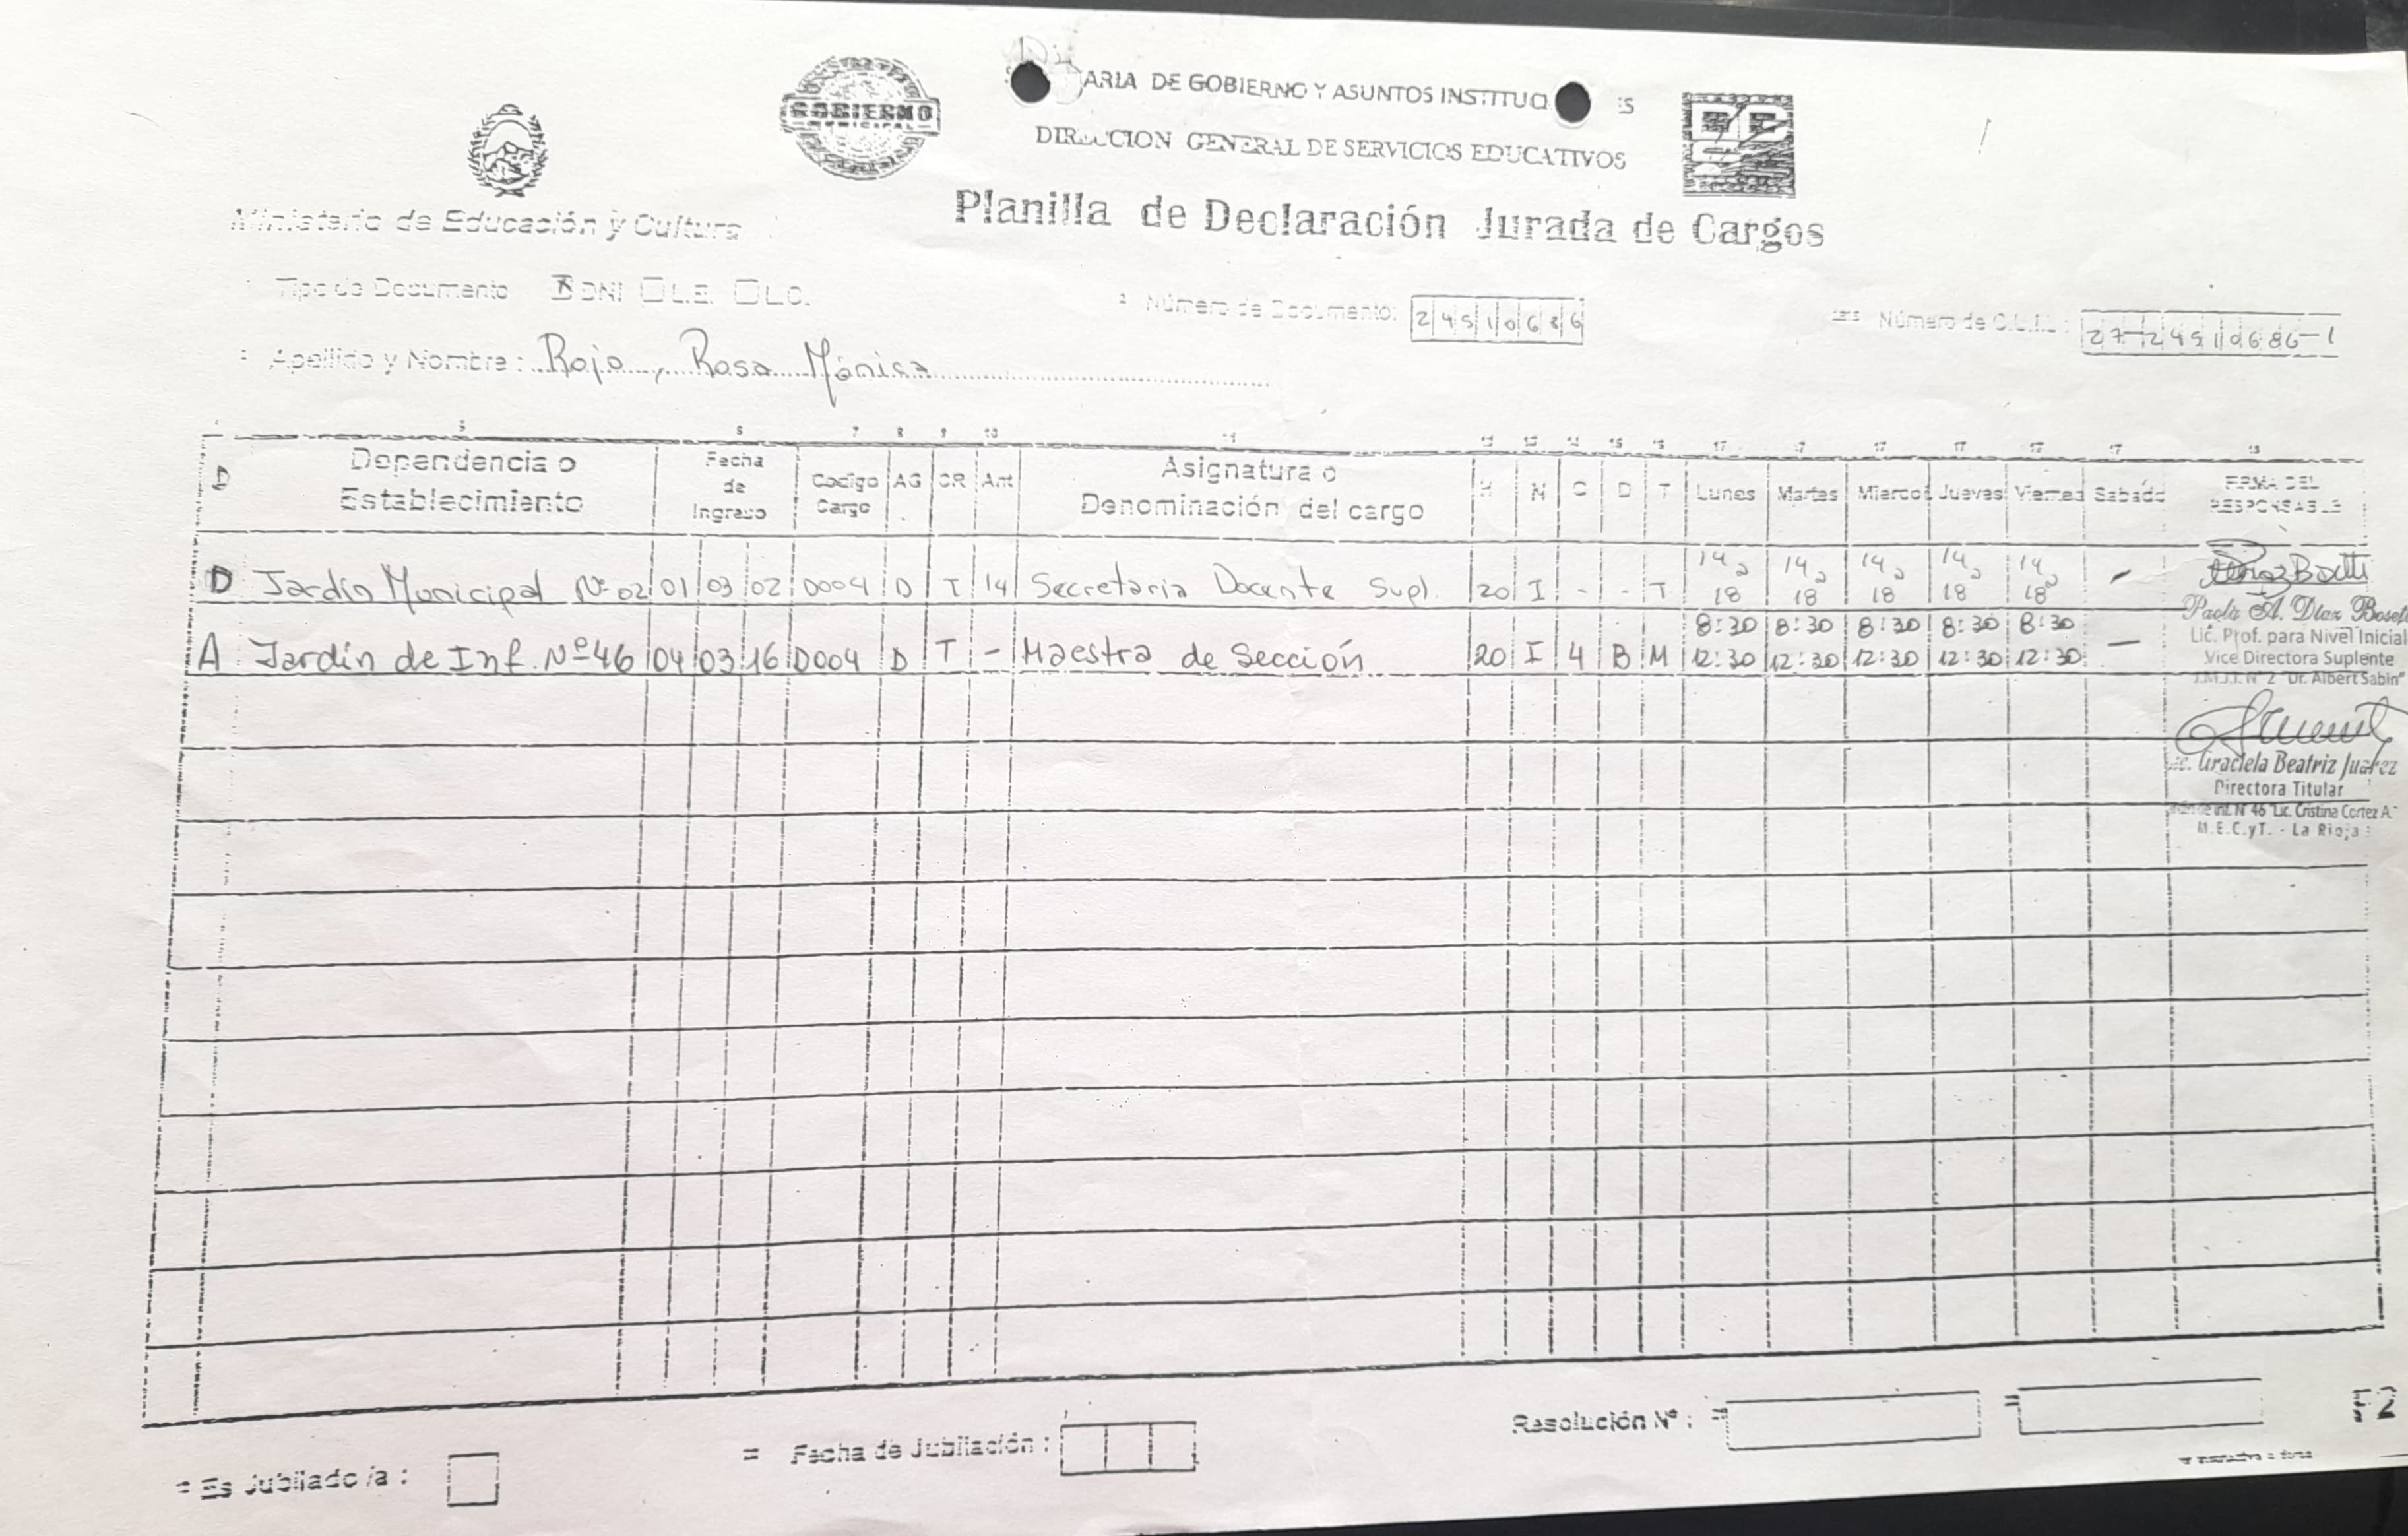 GOBIERNO
ARIA DE GOBIERNO Y ASUNTOS INSTITUCI ES
DIRECCION GENERAL DE SERVICIOS EDUCATIVOS
Ministerio de Educación y Cultura
Planilla de Declaración Jurada de Cargos
Tipo de Documento X DNI L.E. L.C.
Número de Documento: 24510686
Número de C.U.I.L.: 27-24510686-1
Apellido y Nombre: Rojo, Rosa Mónica
5 6 7 8 9 10 11 12 13 14 15 16 17 17 17 17 17 17 18
D Dependencia o Establecimiento Fecha de Ingreso Codigo Cargo AG CR Ant Asignatura o Denominación del cargo H N C D T Lunes Martes Miercol Jueves Viernes Sabado FIRMA DEL RESPONSABLE
D Jardín Municipal Nº 02 01 03 02 0004 D T 14 Secretaria Docente Supl. 20 I - - T 14 a 18 14 a 18 14 a 18 14 a 18 14 a 18 -
A Jardín de Inf. Nº 46 04 03 16 0004 D T - Maestra de Sección 20 I 4 B M 8:30 12:30 8:30 12:30 8:30 12:30 8:30 12:30 8:30 12:30 -
Paola A. Diaz Bosetti
Lic. Prof. para Nivel Inicial
Vice Directora Suplente
J.M.J.I. N° 2 "Dr. Albert Sabin"
Lic. Graciela Beatriz Juarez
Directora Titular
Jardín de Inf. N° 46 "Lic. Cristina Cortez A."
M.E.C.yT. - La Rioja
Es Jubilado/a :
Fecha de Jubilación :
Resolución Nº :
F2